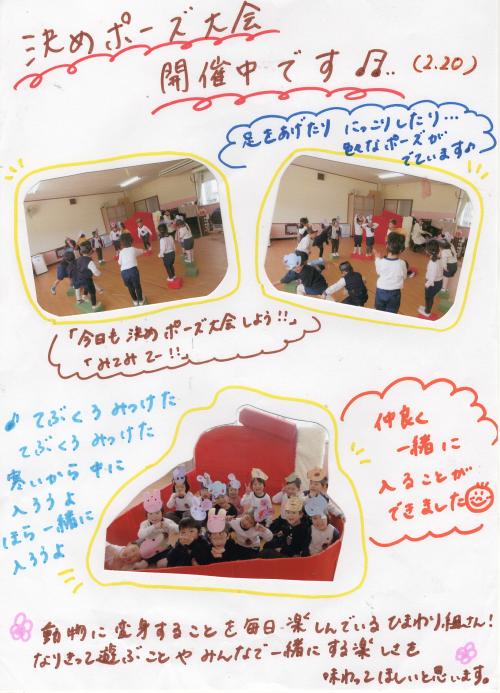 決めポーズ大会
開催中です♫.. (2.20)
足をあげたり にっこりしたり…
色々なポーズが
でています♪
「今日も決めポーズ大会しよう!!」
「みてみてー!!」
♪ てぶくろみつけた
てぶくろみつけた
寒いから中に
入ろうよ
ほら一緒に
入ろうよ
仲良く
一緒に
入ることが
できました
動物に変身することを毎日楽しんでいるひまわり組さん!
なりきって遊ぶことやみんなで一緒にする楽しさを
味わってほしいと思います。